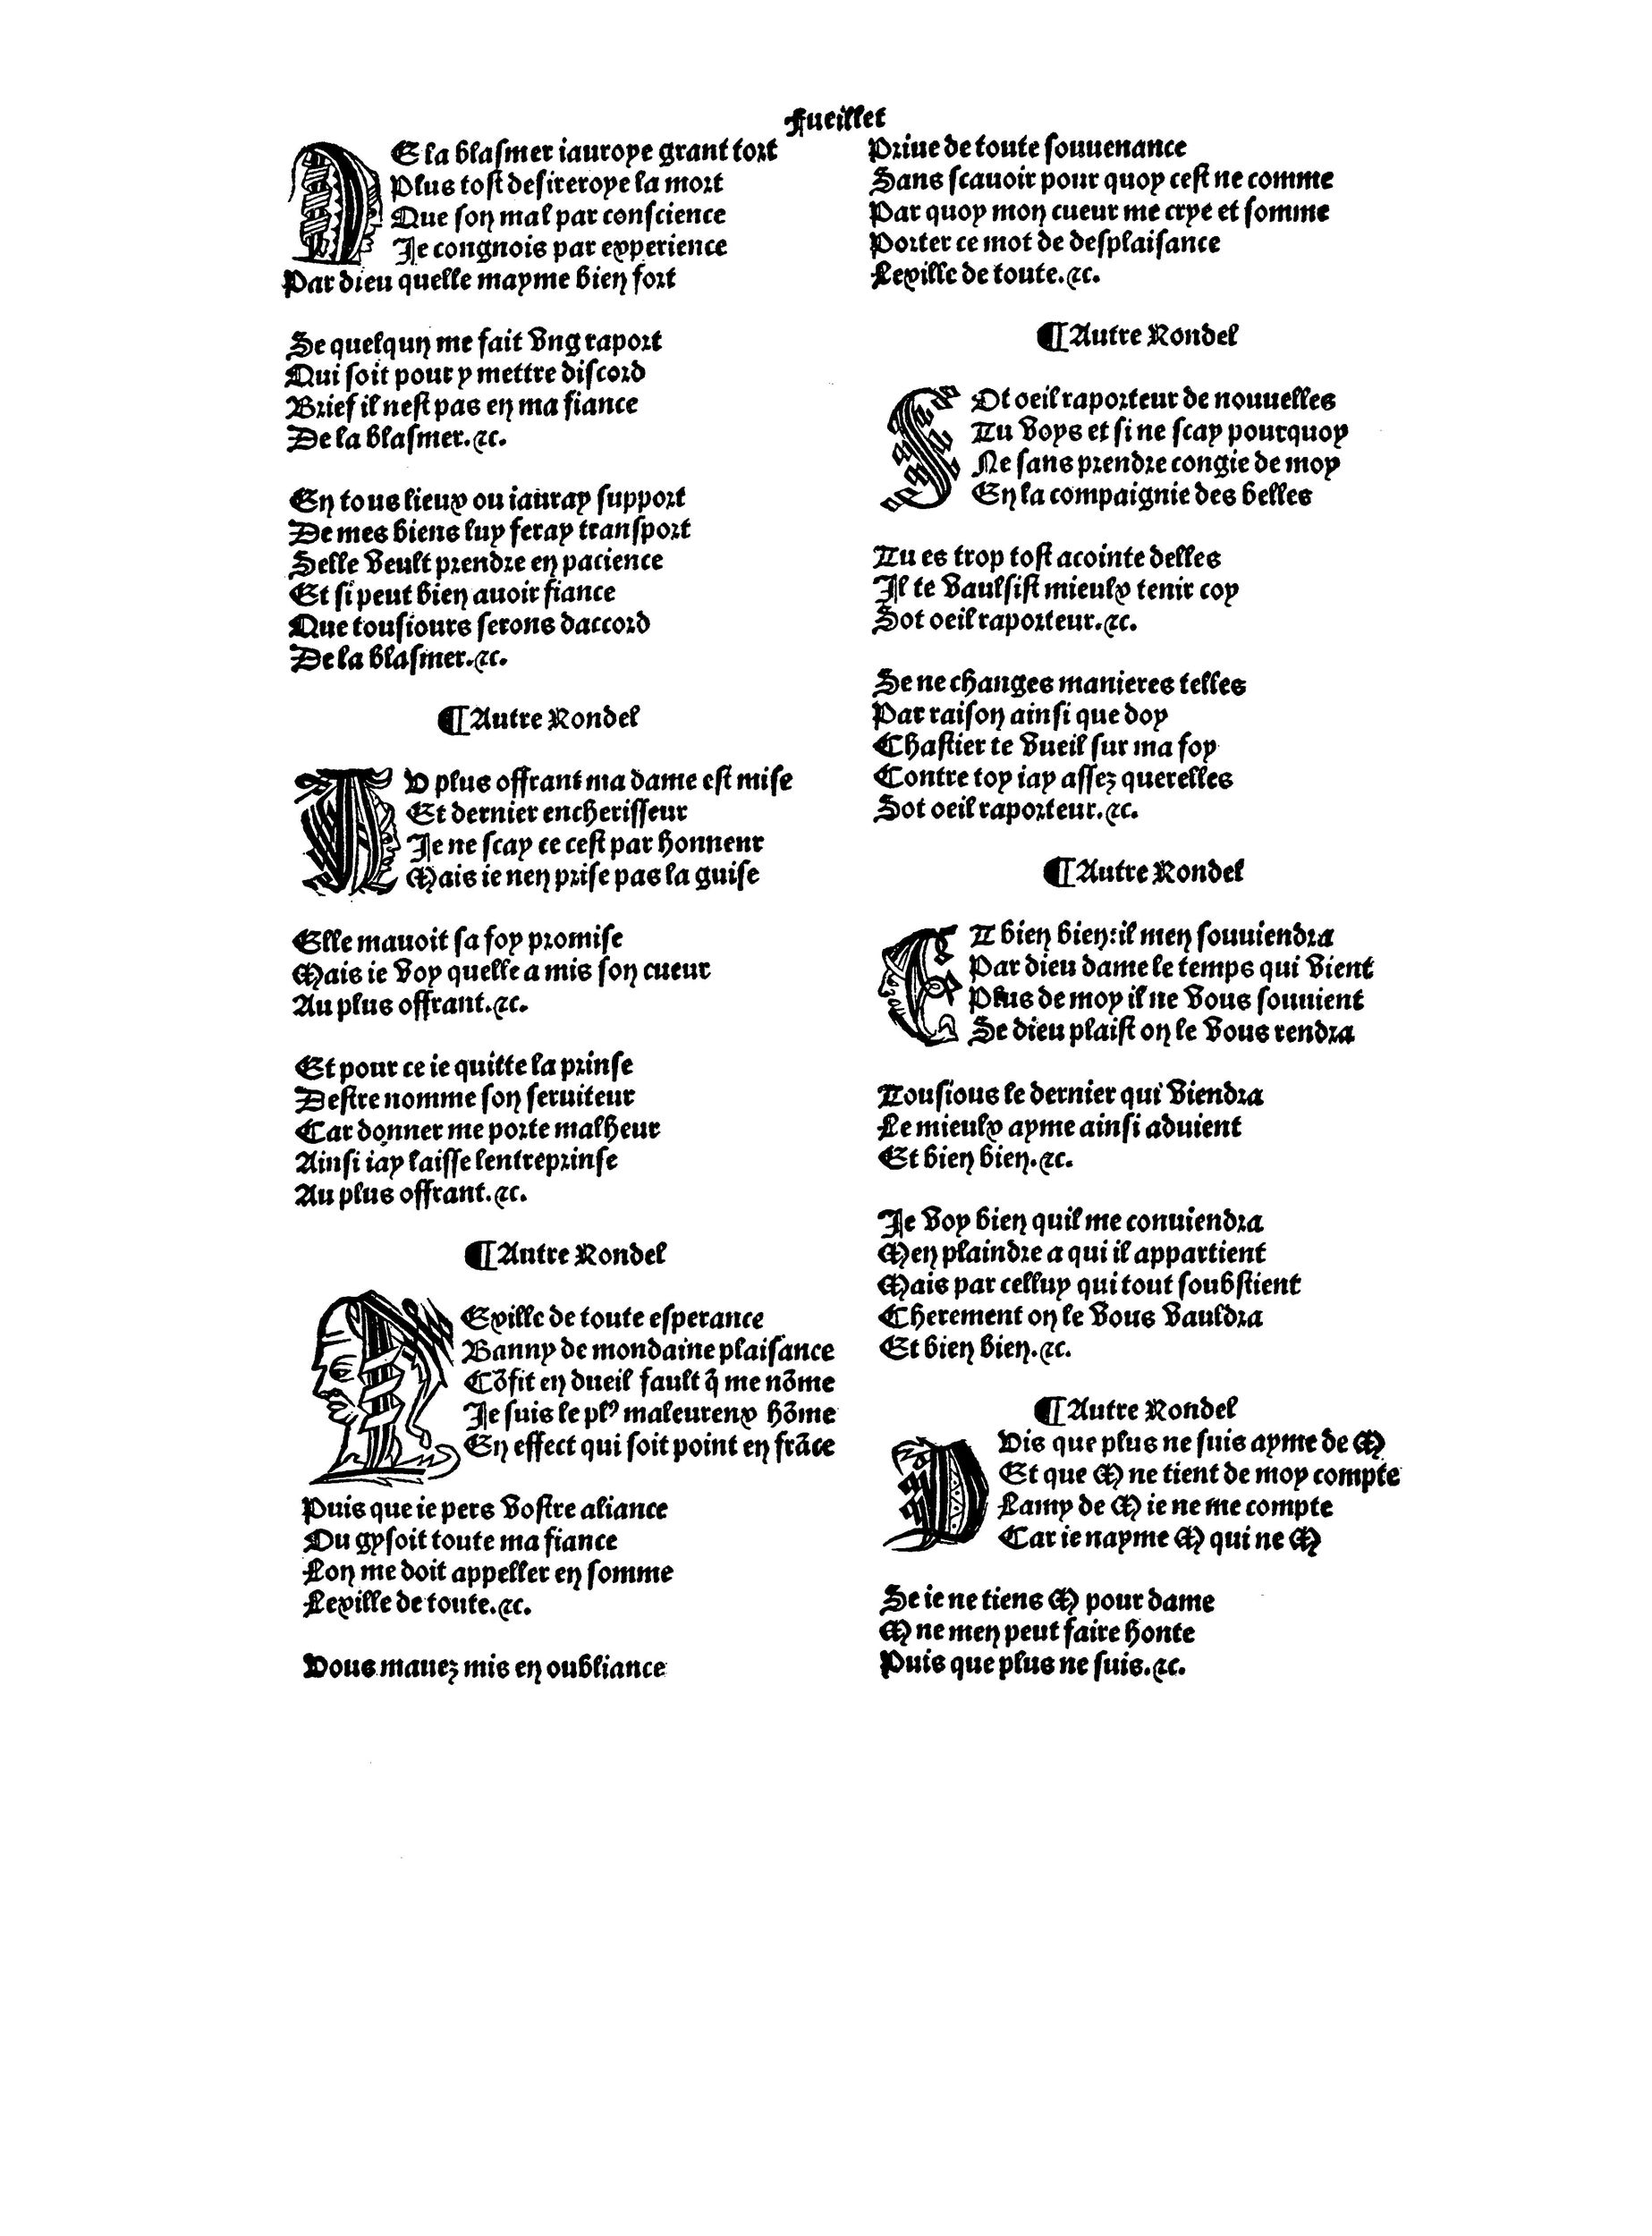 Fueillet
DE la blasmer iauroye grant tort
Plus tost desireroye la mort
Que son mal par conscience
Je congnois par experience
Par dieu quelle mayme bien fort
Se quelqun me fait vng raport
Qui soit pour y mettre discord
Brief il nest pas en ma fiance
De la blasmer.⁊c.
En tous lieux ou iauray support
De mes biens luy feray transport
Selle veult prendre en pacience
Et si peut bien auoir fiance
Que tousiours serons daccord
De la blasmer.⁊c.
¶Autre Rondel
AV plus offrant ma dame est mise
Et dernier encherisseur
Je ne scay ce cest par honneur
Mais ie nen prise pas la guise
Elle mauoit sa foy promise
Mais ie voy quelle a mis son cueur
Au plus offrant.⁊c.
Et pour ce ie quitte la prinse
Destre nomme son seruiteur
Car donner me porte malheur
Ainsi iay laisse lentreprinse
Au plus offrant.⁊c.
¶Autre Rondel
LExille de toute esperance
Banny de mondaine plaisance
Cõfit en dueil fault q̃ me nõme
Je suis le plꝰ maleureux hõme
En effect qui soit point en frãce
Puis que ie pers vostre aliance
Ou gysoit toute ma fiance
Lon me doit appeller en somme
Lexille de toute.⁊c.
Vous mauez mis en oubliance
Priue de toute souuenance
Sans scauoir pour quoy cest ne comme
Par quoy mon cueur me crye et somme
Porter ce mot de desplaisance
Lexille de toute.⁊c.
¶Autre Rondel
SOt oeil raporteur de nouuelles
Tu voys et si ne scay pourquoy
Ne sans prendre congie de moy
En la compaignie des belles
Tu es trop tost acointe delles
Il te vaulsist mieulx tenir coy
Sot oeil raporteur.⁊c.
Se ne changes manieres telles
Par raison ainsi que doy
Chastier te vueil sur ma foy
Contre toy iay assez querelles
Sot oeil raporteur.⁊c.
¶Autre Rondel
ET bien bien:il men souuiendra
Par dieu dame le temps qui vient
Plus de moy il ne vous souuient
Se dieu plaist on le vous rendra
Tousious le dernier qui viendra
Le mieulx ayme ainsi aduient
Et bien bien.⁊c.
Je voy bien quil me conuiendra
Men plaindre a qui il appartient
Mais par celluy qui tout soubstient
Cherement on le vous vauldra
Et bien bien.⁊c.
¶Autre Rondel
PVis que plus ne suis ayme de M
Et que M ne tient de moy compte
Lamy de M ie ne me compte
Car ie nayme M qui ne M
Se ie ne tiens M pour dame
M ne men peut faire honte
Puis que plus ne suis.⁊c.